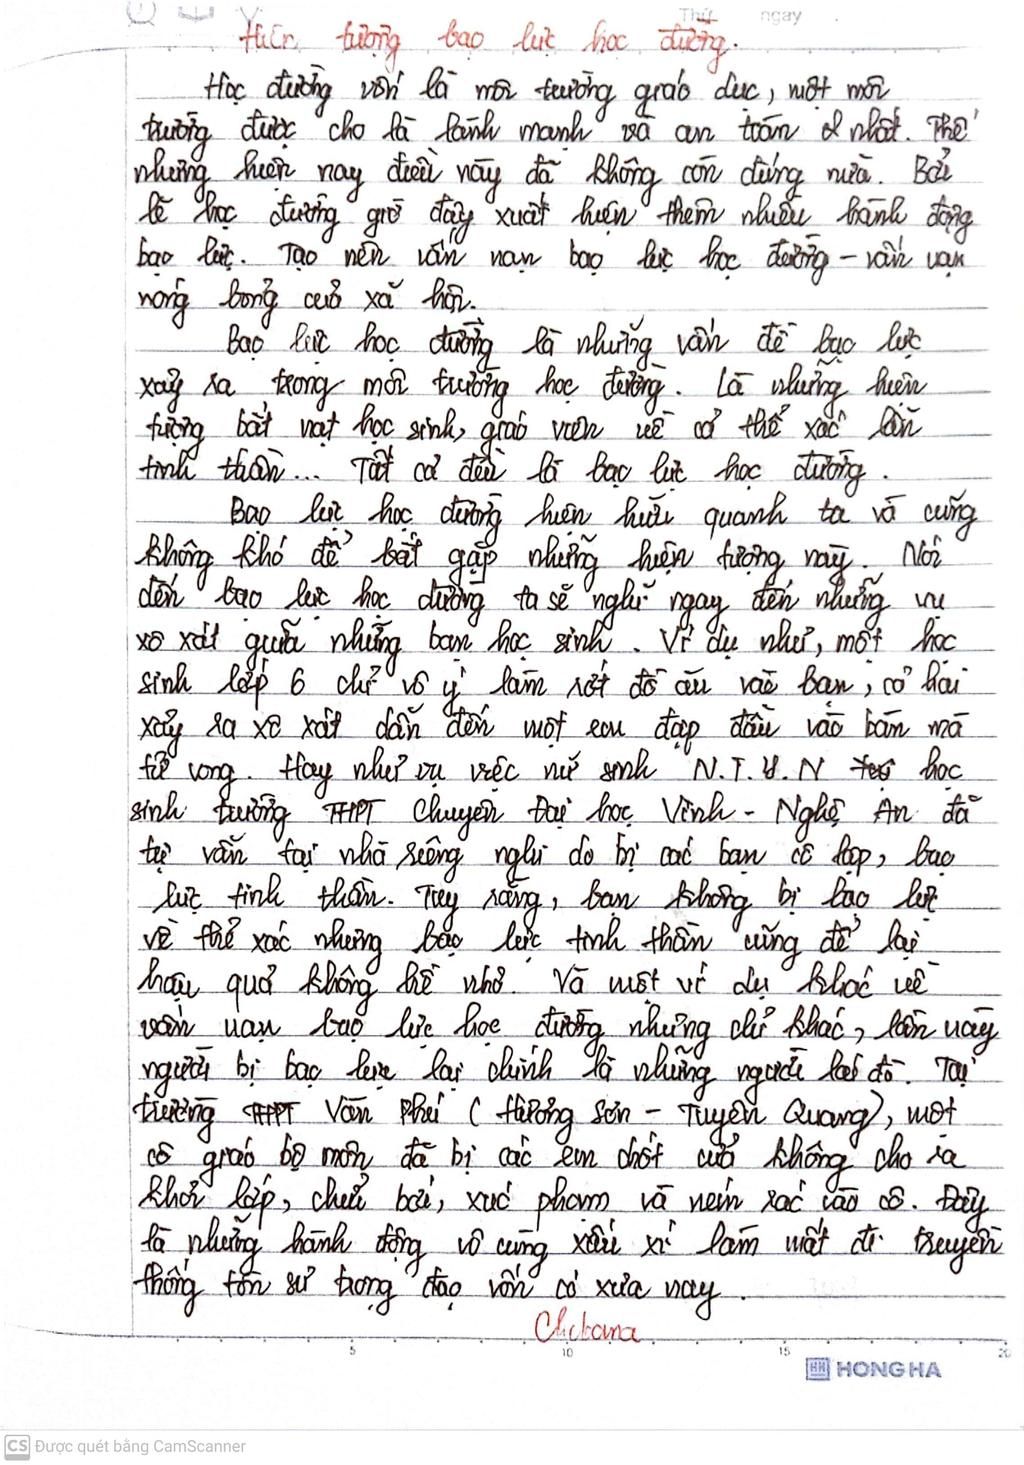 Thứ ngày
Hiện tượng bạo lực học đường.
Học đường vốn là môi trường giáo dục, một môi
trường được cho là lành mạnh và an toàn nhất. Thế
nhưng hiện nay điều này đã không còn đúng nữa. Bởi
lẽ học đường giờ đây xuất hiện thêm nhiều hành động
bạo lực. Tạo nên vấn nạn bạo lực học đường – vấn nạn
nóng bỏng của xã hội.
Bạo lực học đường là những vấn đề bạo lực
xảy ra trong môi trường học đường. Là những hiện
tượng bắt nạt học sinh, giáo viên về cả thể xác lẫn
tinh thần... Tất cả đều là bạo lực học đường.
Bạo lực học đường hiện hữu quanh ta và cũng
không khó để bắt gặp những hiện tượng này. Nói
đến bạo lực học đường ta sẽ nghĩ ngay đến những vụ
xô xát giữa những bạn học sinh. Ví dụ như, một học
sinh lớp 6 chỉ vô ý làm rớt đồ ăn vào bạn, cả hai
xảy ra xô xát dẫn đến một em đập đầu vào bàn mà
tử vong. Hay như vụ việc nữ sinh N.T.Y.N học
sinh trường THPT Chuyên Đại học Vinh - Nghệ An đã
tự vẫn tại nhà riêng nghi do bị các bạn cô lập, bạo
lực tinh thần. Tuy rằng, bạn không bị bạo lực
về thể xác nhưng bạo lực tinh thần cũng để lại
hậu quả không hề nhỏ. Và một ví dụ khác về
vấn nạn bạo lực học đường nhưng chỉ khác, lần này
người bị bạo lực lại chính là những người lái đò. Tại
trường THPT Văn Phú (Hương Sơn - Tuyên Quang), một
cô giáo bộ môn đã bị các em chốt cửa không cho ra
khỏi lớp, chửi bới, xúc phạm và ném rác vào cô. Đây
là những hành động vô cùng xấu xí làm mất đi truyền
thống tôn sư trọng đạo vốn có xưa nay.
5 10 15 20
HH HONG HA
CS Được quét bằng CamScanner